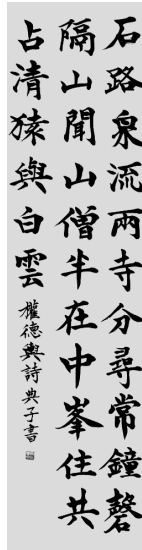 石路泉流兩寺分尋常鐘磬
隔山聞山僧半在中峯住共
占清猿與白雲權德輿詩典子書